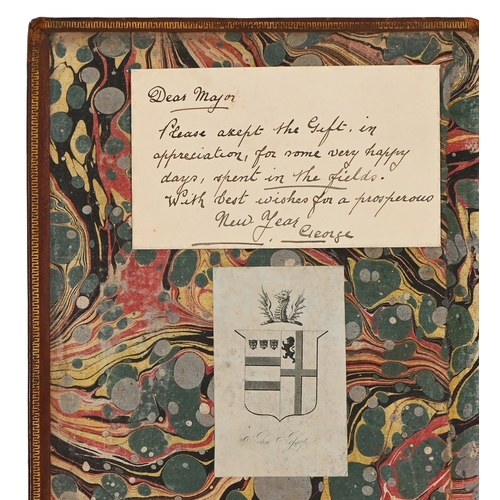 Dear Major
Please axept the Gift, in
appreciation, for some very happy
days, spent in the fields.
With best wishes for a prosperous
New Year
George